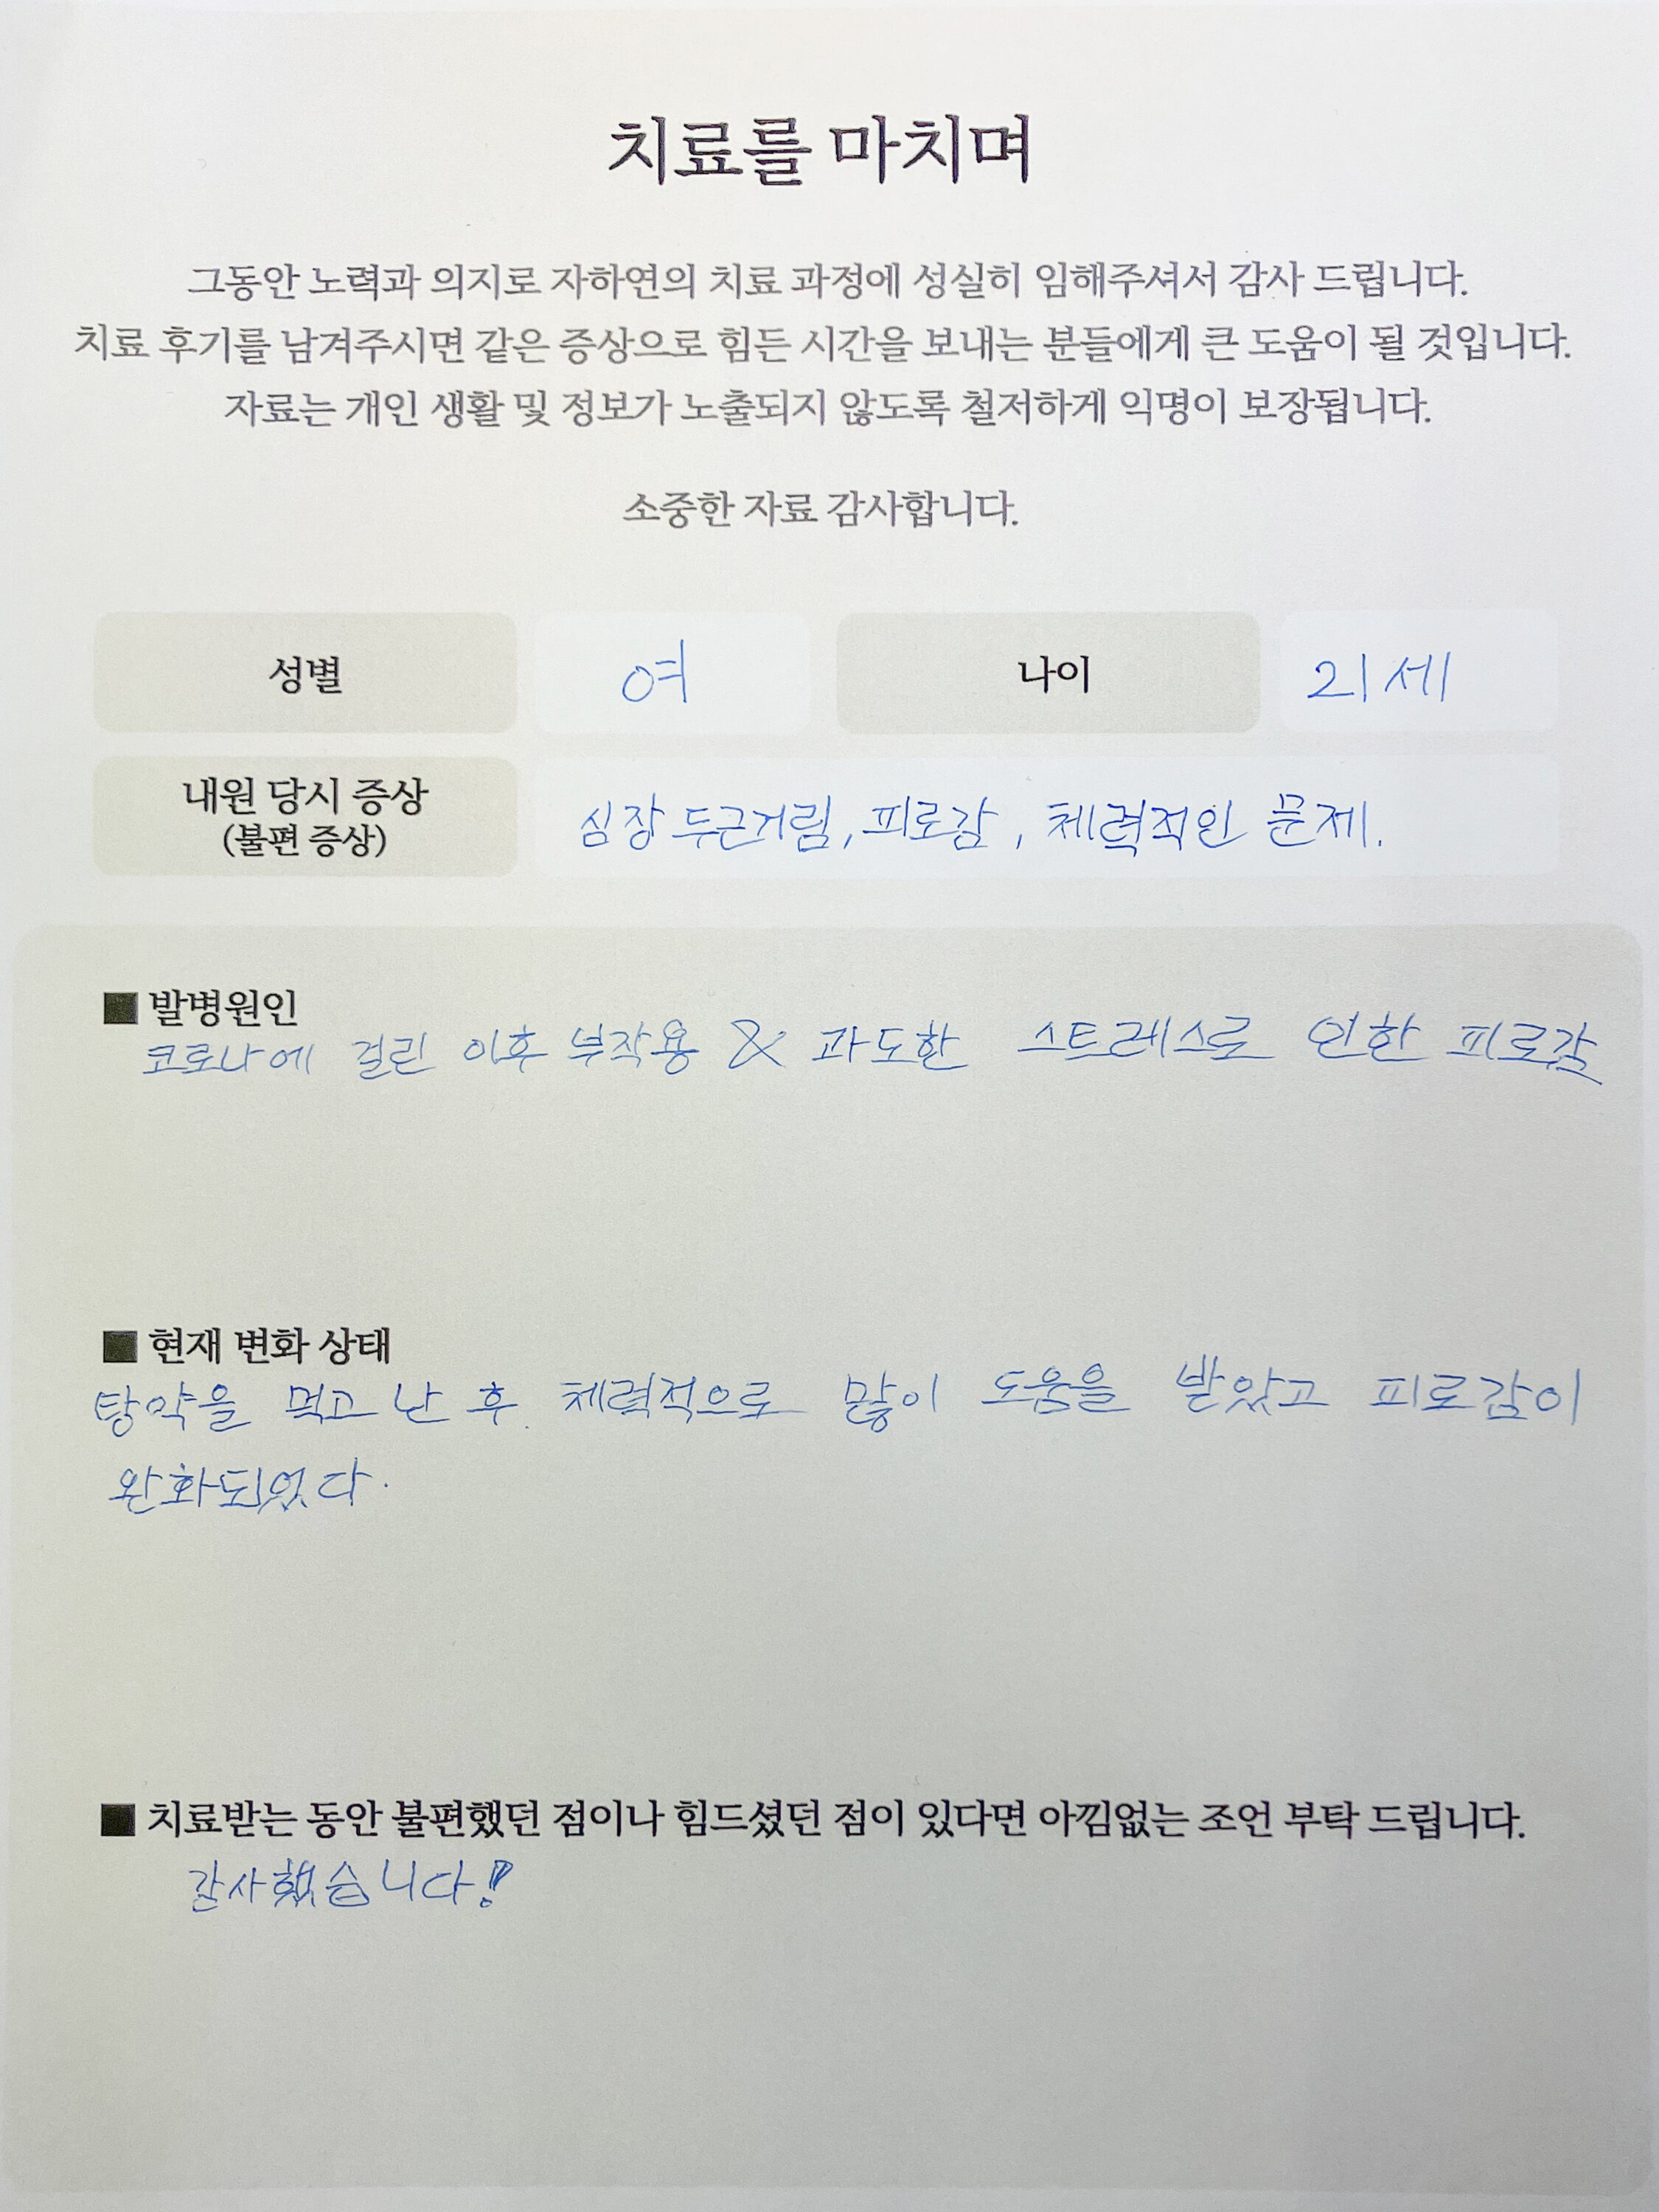 치료를 마치며
그동안 노력과 의지로 자하연의 치료 과정에 성실히 임해주셔서 감사 드립니다.
치료 후기를 남겨주시면 같은 증상으로 힘든 시간을 보내는 분들에게 큰 도움이 될 것입니다.
자료는 개인 생활 및 정보가 노출되지 않도록 철저하게 익명이 보장됩니다.
소중한 자료 감사합니다.
성별 여 나이 21세
내원 당시 증상
(불편 증상)
심장 두근거림, 피로감, 체력적인 문제.
■ 발병원인
코로나에 걸린 이후 부작용 & 과도한 스트레스로 인한 피로감
■ 현재 변화 상태
탕약을 먹고 난 후 체력적으로 많이 도움을 받았고 피로감이
완화되었다.
■ 치료받는 동안 불편했던 점이나 힘드셨던 점이 있다면 아낌없는 조언 부탁 드립니다.
감사했습니다!